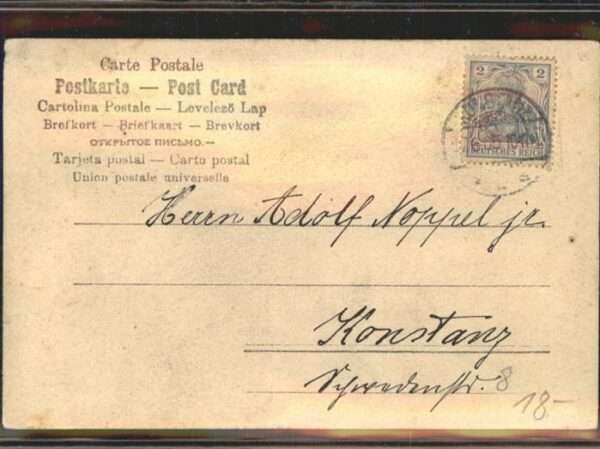 Carte Postale
Postkarte — Post Card
Cartolina Postale — Levelező Lap
Brefkort — Briefkaart — Brevkort
ОТКРЫТОЕ ПИСЬМО.—
Tarjeta postal — Carto postal
Union postale universelle
2 2
DEUTSCHES REICH
Herrn Adolf Noppel jr.
Konstanz
Schwedenstr. 8
18-